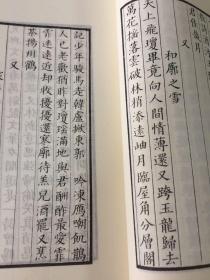 又
和廓之雪
天上飛瓊畢竟向人間情薄還又跨玉龍歸去
萬花搖落雲破林梢添遠岫月臨屋角分層閣
記少年駿馬走韓盧掀東郭　吟凍雁嘲飢鵲
人已老歡猶昨對瓊瑤滿地與君酬酢最愛霏
霏迷遠近却收擾擾還寥廓待羔兒酒罷又烹
茶揚州鶴
又